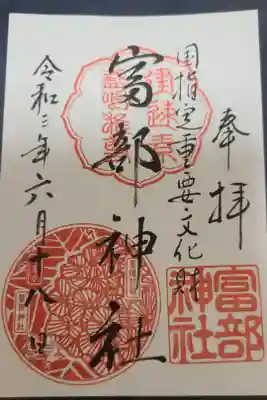 奉拝
国指定重要文化財
富部神社
令和三年六月十八日
富部
神社